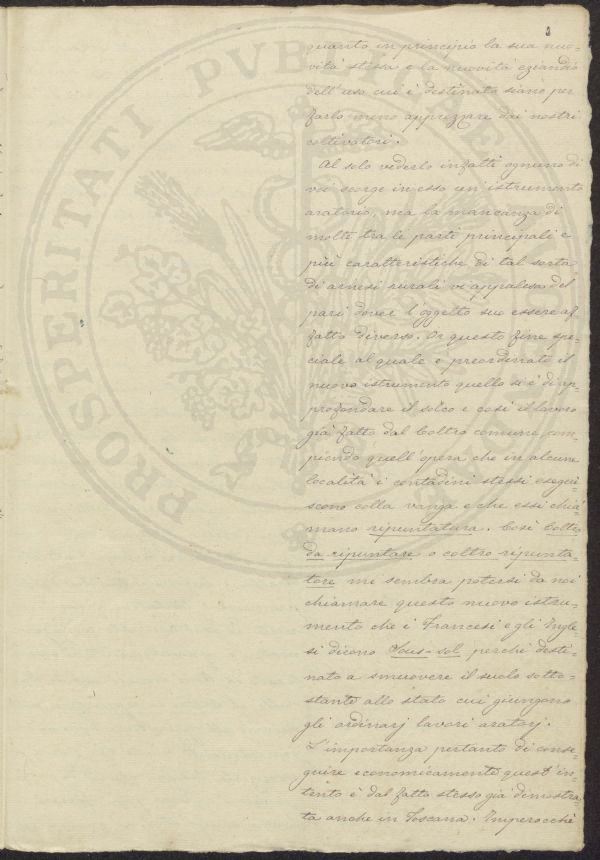 quanto in principio la sua nuo-
vità stessa e la nuovità eziandio
dell'uso cui è destinato siano per
farlo meno apprezzare dai nostri
coltivatori.
Al solo vederlo infatti ognuno di
voi scorge in esso un'istrumento
aratorio, ma la mancanza di
molte tra le parti principali e
più caratteristiche di tal sorta
di arnesi rurali vi appalesa del
pari dover l'oggetto suo essere af-
fatto diverso. Or questo fine spe-
ciale al quale è preordinato il
nuovo istrumento quello si è di ap-
profondare il solco e così il lavoro
già fatto dal Coltro comune com-
piendo quell'opera che in alcune
località i contadini stessi esegui-
scono colla vanga e che essi chia-
mano ripuntatura. Così Coltro
da ripuntare o coltro ripunta-
tore mi sembra potersi da noi
chiamare questo nuovo istru-
mento che i Francesi e gli Ingle-
si dicono Sous-sol perché desti-
nato a smuovere il suolo sotto-
stante allo strato cui giungono
gli ordinarj lavori aratorj.
L'importanza pertanto di conse-
guire economicamente quest'in-
tento è dal fatto stesso già dimostra-
ta anche in Toscana. Imperocchè
PROSPERITATI PVBLICAE